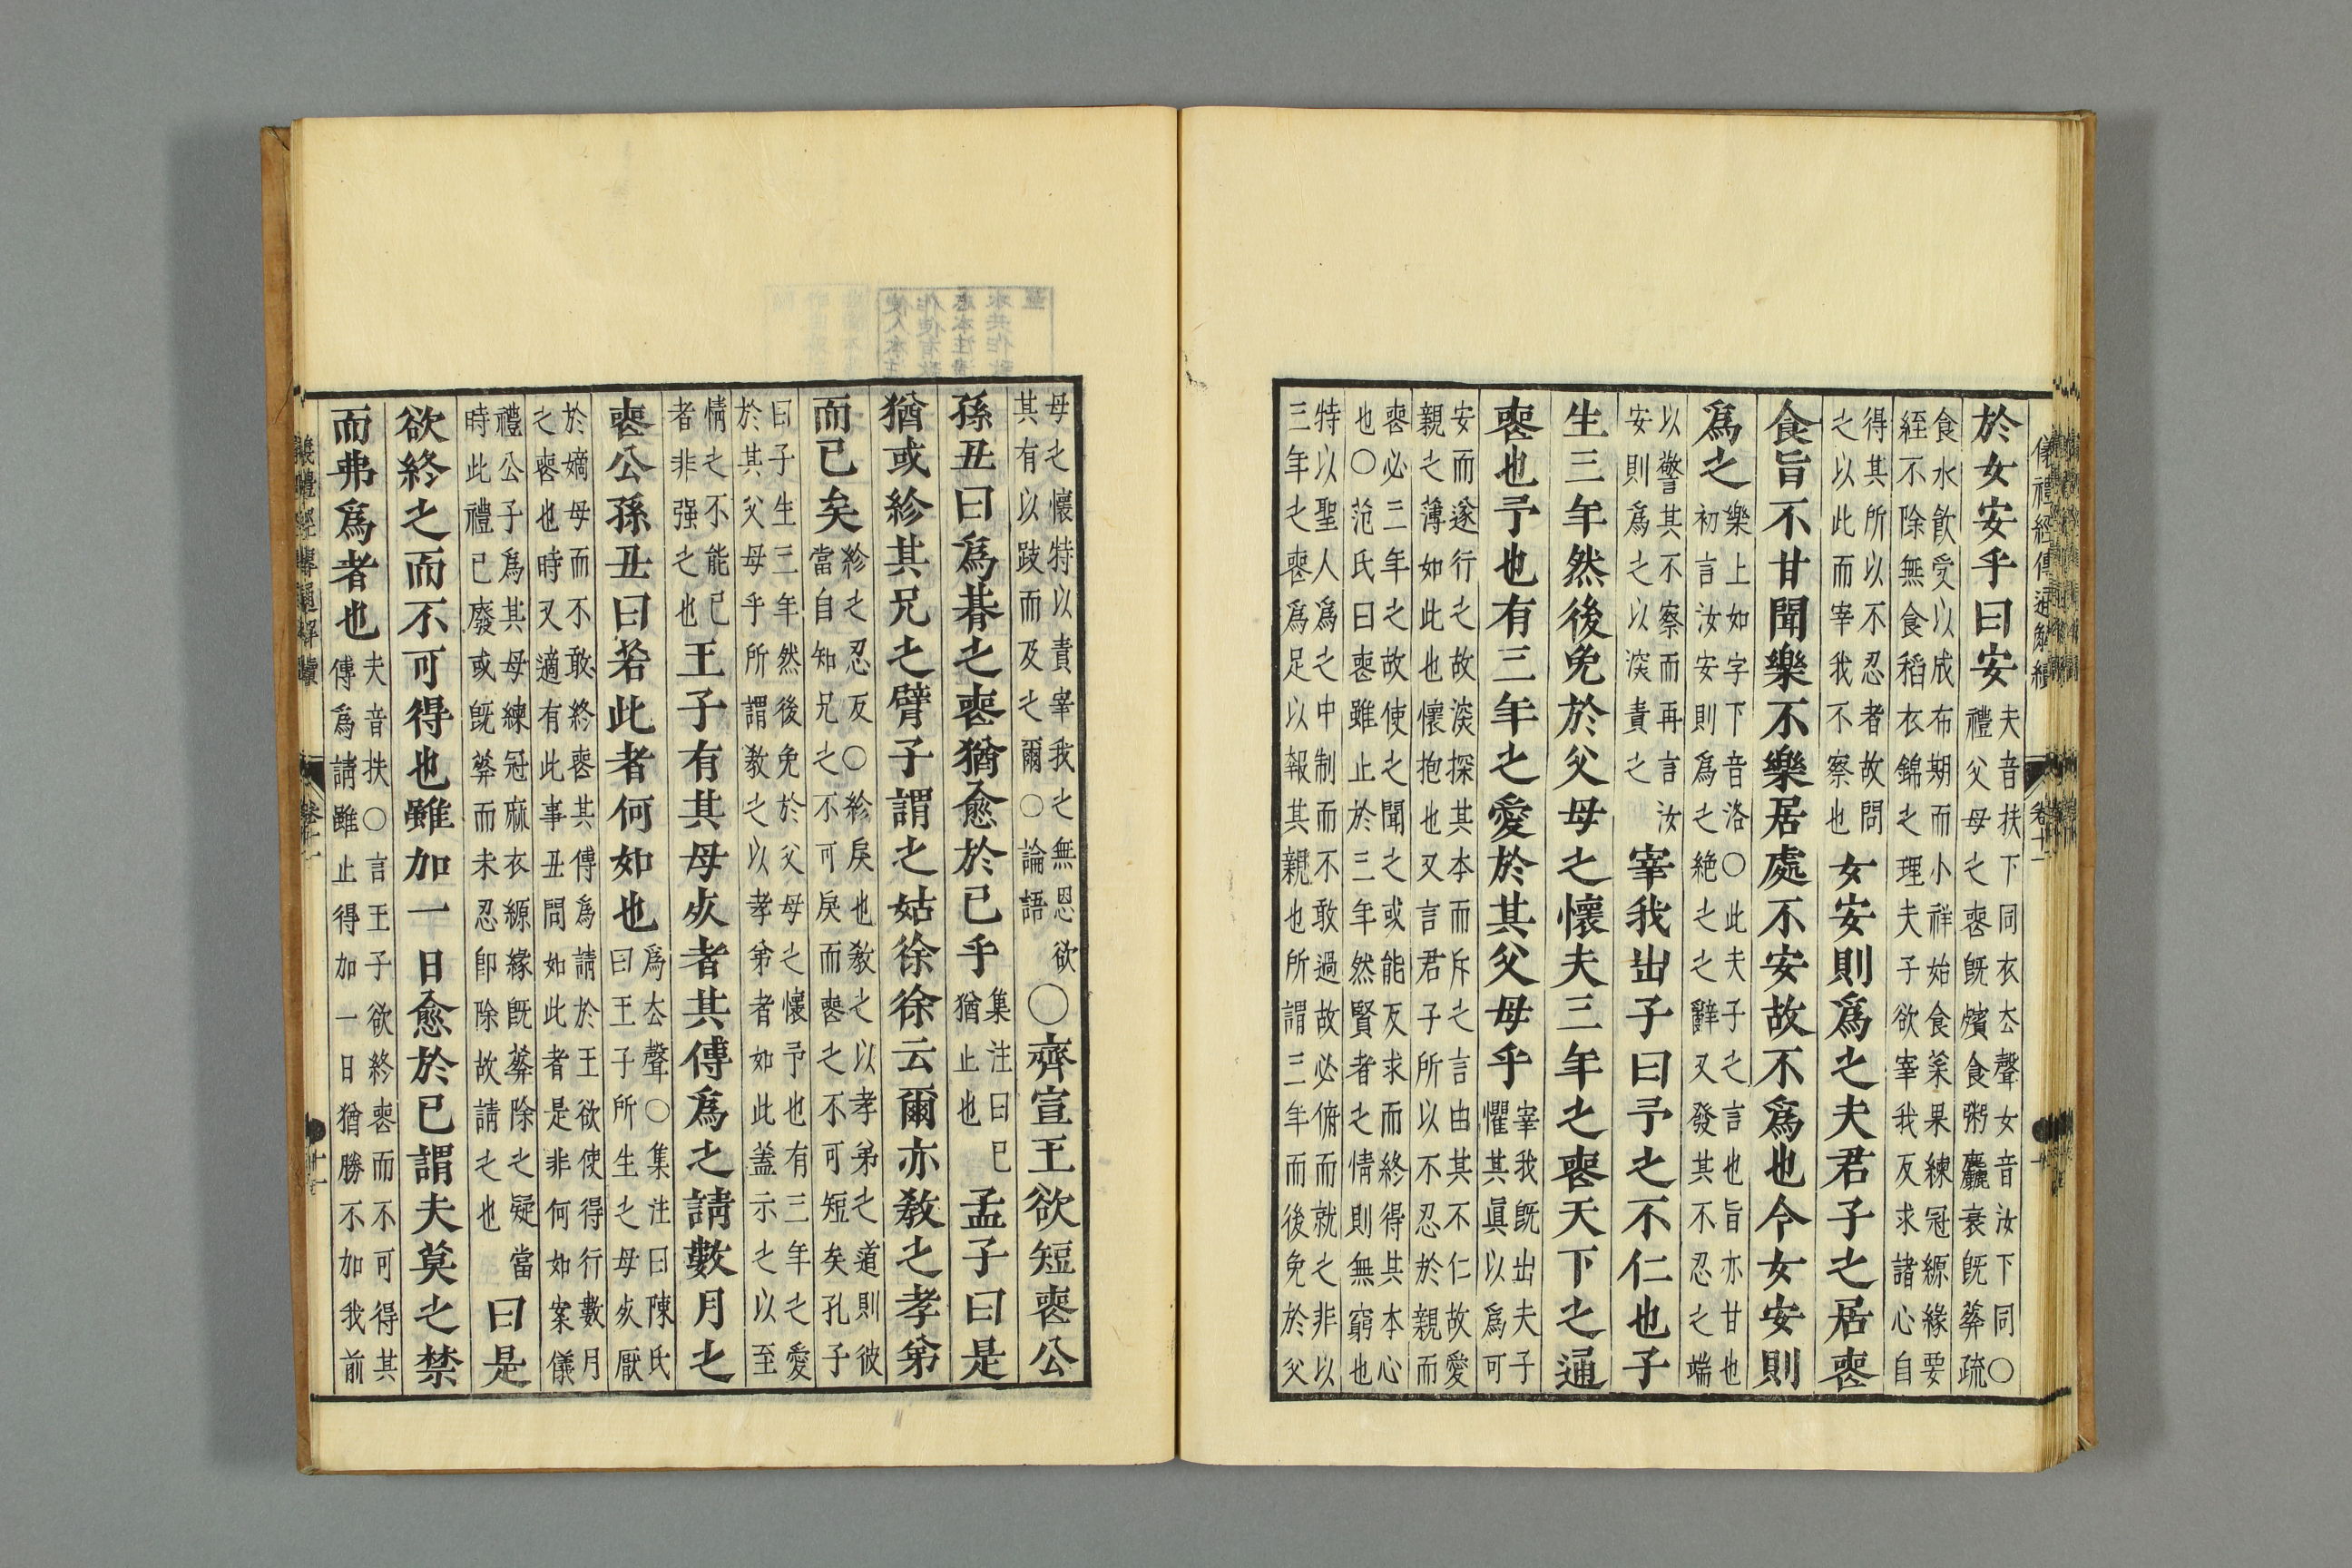 儀禮經傳通解續
卷十一
於女安乎曰安夫音扶下同衣去聲女音汝下同○
禮父母之喪旣殯食粥麤衰旣葬疏
食水飮受以成布期而小祥始食菜果練冠縓緣要
絰不除無食稻衣錦之理夫子欲宰我反求諸心自
得其所以不忍者故問
之以此而宰我不察也女安則爲之夫君子之居喪
食旨不甘聞樂不樂居處不安故不爲也今女安則
爲之樂上如字下音洛○此夫子之言也旨亦甘也
初言汝安則爲之絶之之辭又發其不忍之端
以警其不察而再言汝
安則爲之以深責之宰我出子曰予之不仁也子
生三年然後免於父母之懷夫三年之喪天下之通
喪也予也有三年之愛於其父母乎宰我旣出夫子
懼其眞以爲可
安而遂行之故深探其本而斥之言由其不仁故愛
親之薄如此也懷抱也又言君子所以不忍於親而
喪必三年之故使之聞之或能反求而終得其本心
也○范氏曰喪雖止於三年然賢者之情則無窮也
特以聖人爲之中制而不敢過故必俯而就之非以
三年之喪爲足以報其親也所謂三年而後免於父
母之懷特以責宰我之無恩欲
其有以跂而及之爾○論語○齊宣王欲短喪公
孫丑曰爲朞之喪猶愈於已乎集注曰已
猶止也孟子曰是
猶或紾其兄之臂子謂之姑徐徐云爾亦敎之孝弟
而已矣紾之忍反○紾戾也敎之以孝弟之道則彼
當自知兄之不可戾而喪之不可短矣孔子
曰子生三年然後免於父母之懷予也有三年之愛
於其父母乎所謂敎之以孝弟者如此蓋示之以至
情之不能已
者非强之也王子有其母死者其傅爲之請數月之
喪公孫丑曰若此者何如也爲去聲○集注曰陳氏
曰王子所生之母死厭
於嫡母而不敢終喪其傅爲請於王欲使得行數月
之喪也時又適有此事丑問如此者是非何如案儀
禮公子爲其母練冠麻衣縓緣旣葬除之疑當
時此禮已廢或旣葬而未忍卽除故請之也曰是
欲終之而不可得也雖加一日愈於已謂夫莫之禁
而弗爲者也夫音扶○言王子欲終喪而不可得其
傅爲請雖止得加一日猶勝不加我前